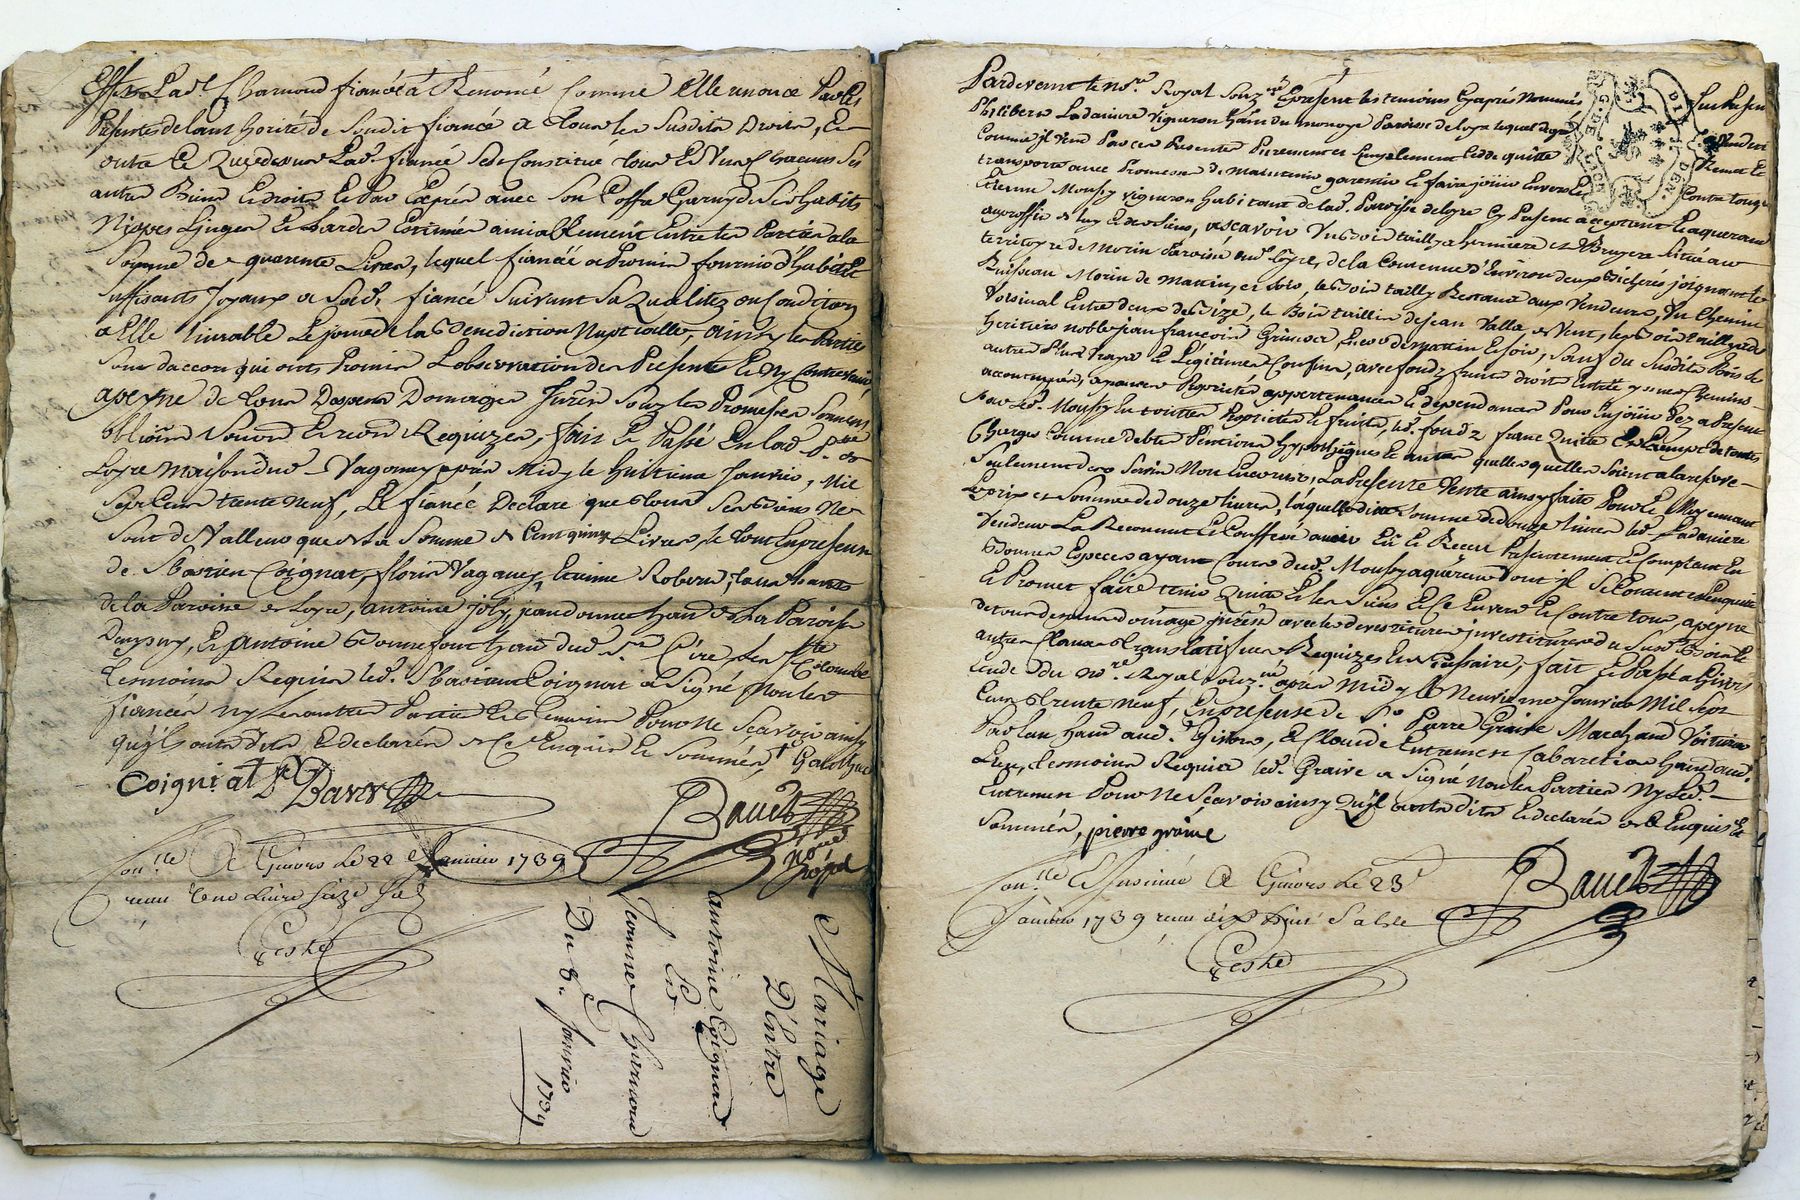 Effets Lad.t Charnond fiancée a Renoncé Comme Elle renonce Par les
Presentes de lauthorité de Sondit fiancé a tous les Susdits Droits, Et
outre Ce Que dessus Lad. fiancée Sest Constitué tous Et Un Chacuns Ses
autres Biens Et droits Et Par Exprés avec Son Coffre Garny de Ses habits
Nippes Linges Et hardes Estimés amiablement Entre les Parties a la
Somme de quarente Livres, lequel fiancé a Promis fournir d'habits Et
Suffisants Joyaux a Sad. fiancée Suivant Sa Qualité ou Condition
a Elle livrable Le jour de la Benediction Nuptialle, ainsy les Parties
Sont d'accord qui ont Promis L'observation des Presentes Et Ny Contrevenir
apeyne de tous Despens Domages Jurés Sous les Promesses Sermens
oblions Renon Et Requizes, fait Et Passé En lad. P.sse de
Loyre Maison dud. Vaganay aprés Midy le huitieme Janvier, Mil
Sept Cens trente Neuf, Le fiancé Declare que tous Ses Biens Ne
Sont de Valleur que de La Somme de Cent quinze Livres, le tout En presence
de Sbastien Coignat, floris Vaganey, Etienne Robert, habitants
de la Paroisse de Loyre, antoine joly, hand de La Paroisse
Dampuy, Et antoine Bonnefont hand dud. St Cire, Les Ste Colombe
temoins Requis led. Sbastien Coignat a Signé Non les
fiancés Ny les autres Parties Et temoins Pour Ne Scavoir ainsy
qu'ils ont dits Et declarés de Ce Enquis Et Sommés,
Coignat
Bavet
No.re Royal
Con.lle A Givors Le 22 Janvier 1739
receu une Livre Seize Sols
Mariage
D'Entre
antoine Coignat
Et
Jeanne Charnond
Du 8.e Janvier 1739
Pardevant le No.re Royal Souz.né Et present les temoins Cy aprés Nommés
Philibert Ladavicre Vigneron hand du Paroisse de Loyre lequel de gré
Comme jl Vend Par ces Presentes Purement et Simplement Cedde quitte Remet Et
transporte avec Promesse de Maintenir garentir Et faire joüir Envers Et Contre tous, a
Etienne Moussy Vigneron habitant de lad. Paroisse de Loyre Cy Present acceptant Et aquereur
au proffit de luy Et des Siens, ascavoir Un Bois tailly a Pruniere et Bruyere Situé au
territoyre de Morin Paroisse dud. Loyre, de la Contenue d'Environ deux Bicherés joignant le
Ruisseau Morin de Matin, et Soir, le Bois tailly Restant aux Vendeurs, Un Chemin
Voisinal Entre deux de Bize, le Bois taillis de Jean Valla de Vent, les Bois taillys des
heritiers noble jean francois Grimod, Encor de matin Et Soir, Sauf du Susdit Bois Ses
autres Plus Vrays Et Legitimes Confins, avec fondz fruits droits Entrées ysues Chemins
accoutumés, aysances Proprietés appartenances Et dependances Pour En joüir dez a Present
Par led. Moussy En toutte Proprieté Et fruits, led. fondz franc Quitte Et Exempt de toutes
Charges Comme debtes Pensions hypothéques Et autres quelles quelles Soient a la reserve
Seulement des Servis Non Encourus, La Presente Vente ainsy faite Pour Et Moyennant
Le Prix et Somme de douze livres, laquelle ditte Somme de douze livres led. Ladavicre
Vendeur La Reconnut Et Confessé avoir Eu Et Receu Presentement Et Comptant En
Bonnes Especes ayant Cours dud. Moussy aquereur dont jl Se Contente L'en quitte
Et Promet faire tenir Quitte Et les Siens Et Ce Envers Et Contre tous apeyne
de tous despens domage jnteres avec les devestitures jnvestitures du Susd. Bois Et
autres Clauses translatives Requizes Et Necessaire, fait Et Passé a Givors
Etude du No.re Royal Souz.né aprés Midy le Neuvieme Janvier Mil Sept
Cens trente Neuf, En presence de S.r Pierre Graire Marchand Voiturier
Par Eau hand aud. Givors, Et Claude Entremen Cabaretier hand aud.
Lieu, temoins Requis led. Graire a Signé Non les Parties Ny led.
Entremen Pour Ne Scavoir ainsy Qu'jls ont dits Et declarés de Ce Enquis Et
Sommés, pierre graire
Bavet
Con.lle Et Insinué A Givors Le 23.e
Janvier 1739 receu